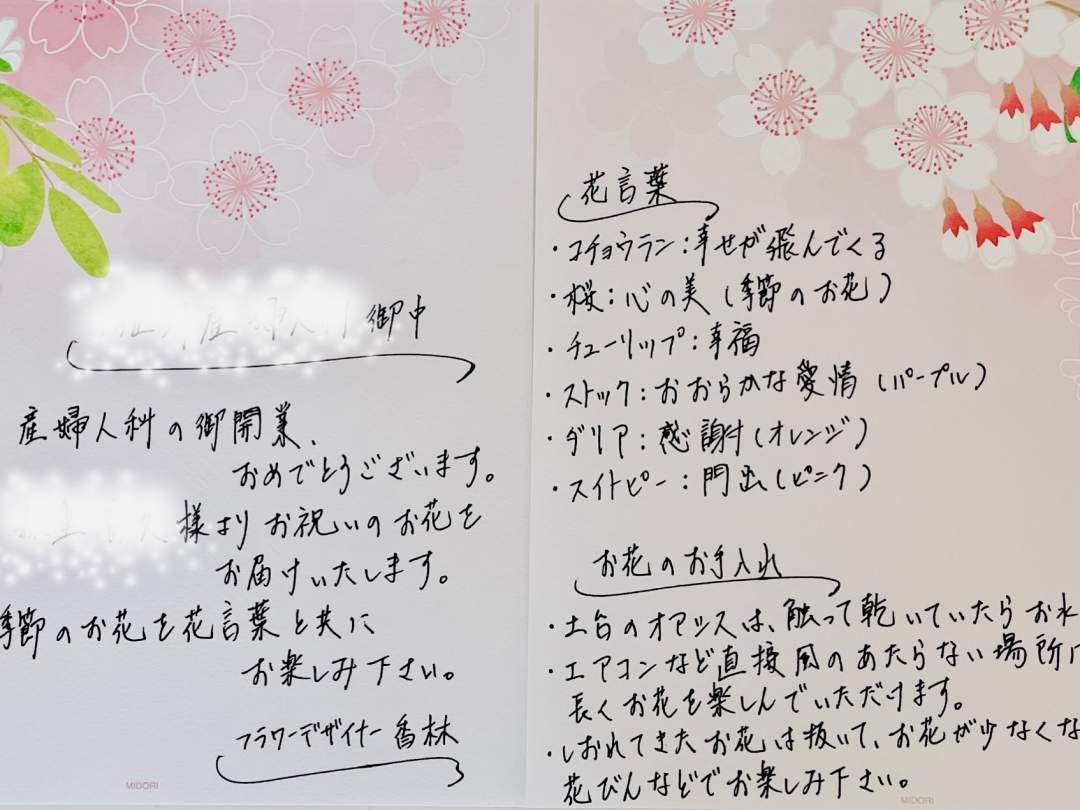 御中
産婦人科の御開業、
おめでとうございます。
様よりお祝いのお花を
お届けいたします。
季節のお花を花言葉と共に
お楽しみ下さい。
フラワーデザイナー 香林
MIDORI
花言葉
・コチョウラン：幸せが飛んでくる
・桜：心の美（季節のお花）
・チューリップ：幸福
・ストック：おおらかな愛情（パープル）
・ダリア：感謝（オレンジ）
・スイトピー：門出（ピンク）
お花のお手入れ
・土台のオアシスは、触って乾いていたらお水
・エアコンなど直接風のあたらない場所
長くお花を楽しんでいただけます。
・しおれてきたお花は抜いて、お花が少なくな
花びんなどでお楽しみ下さい。
MIDORI